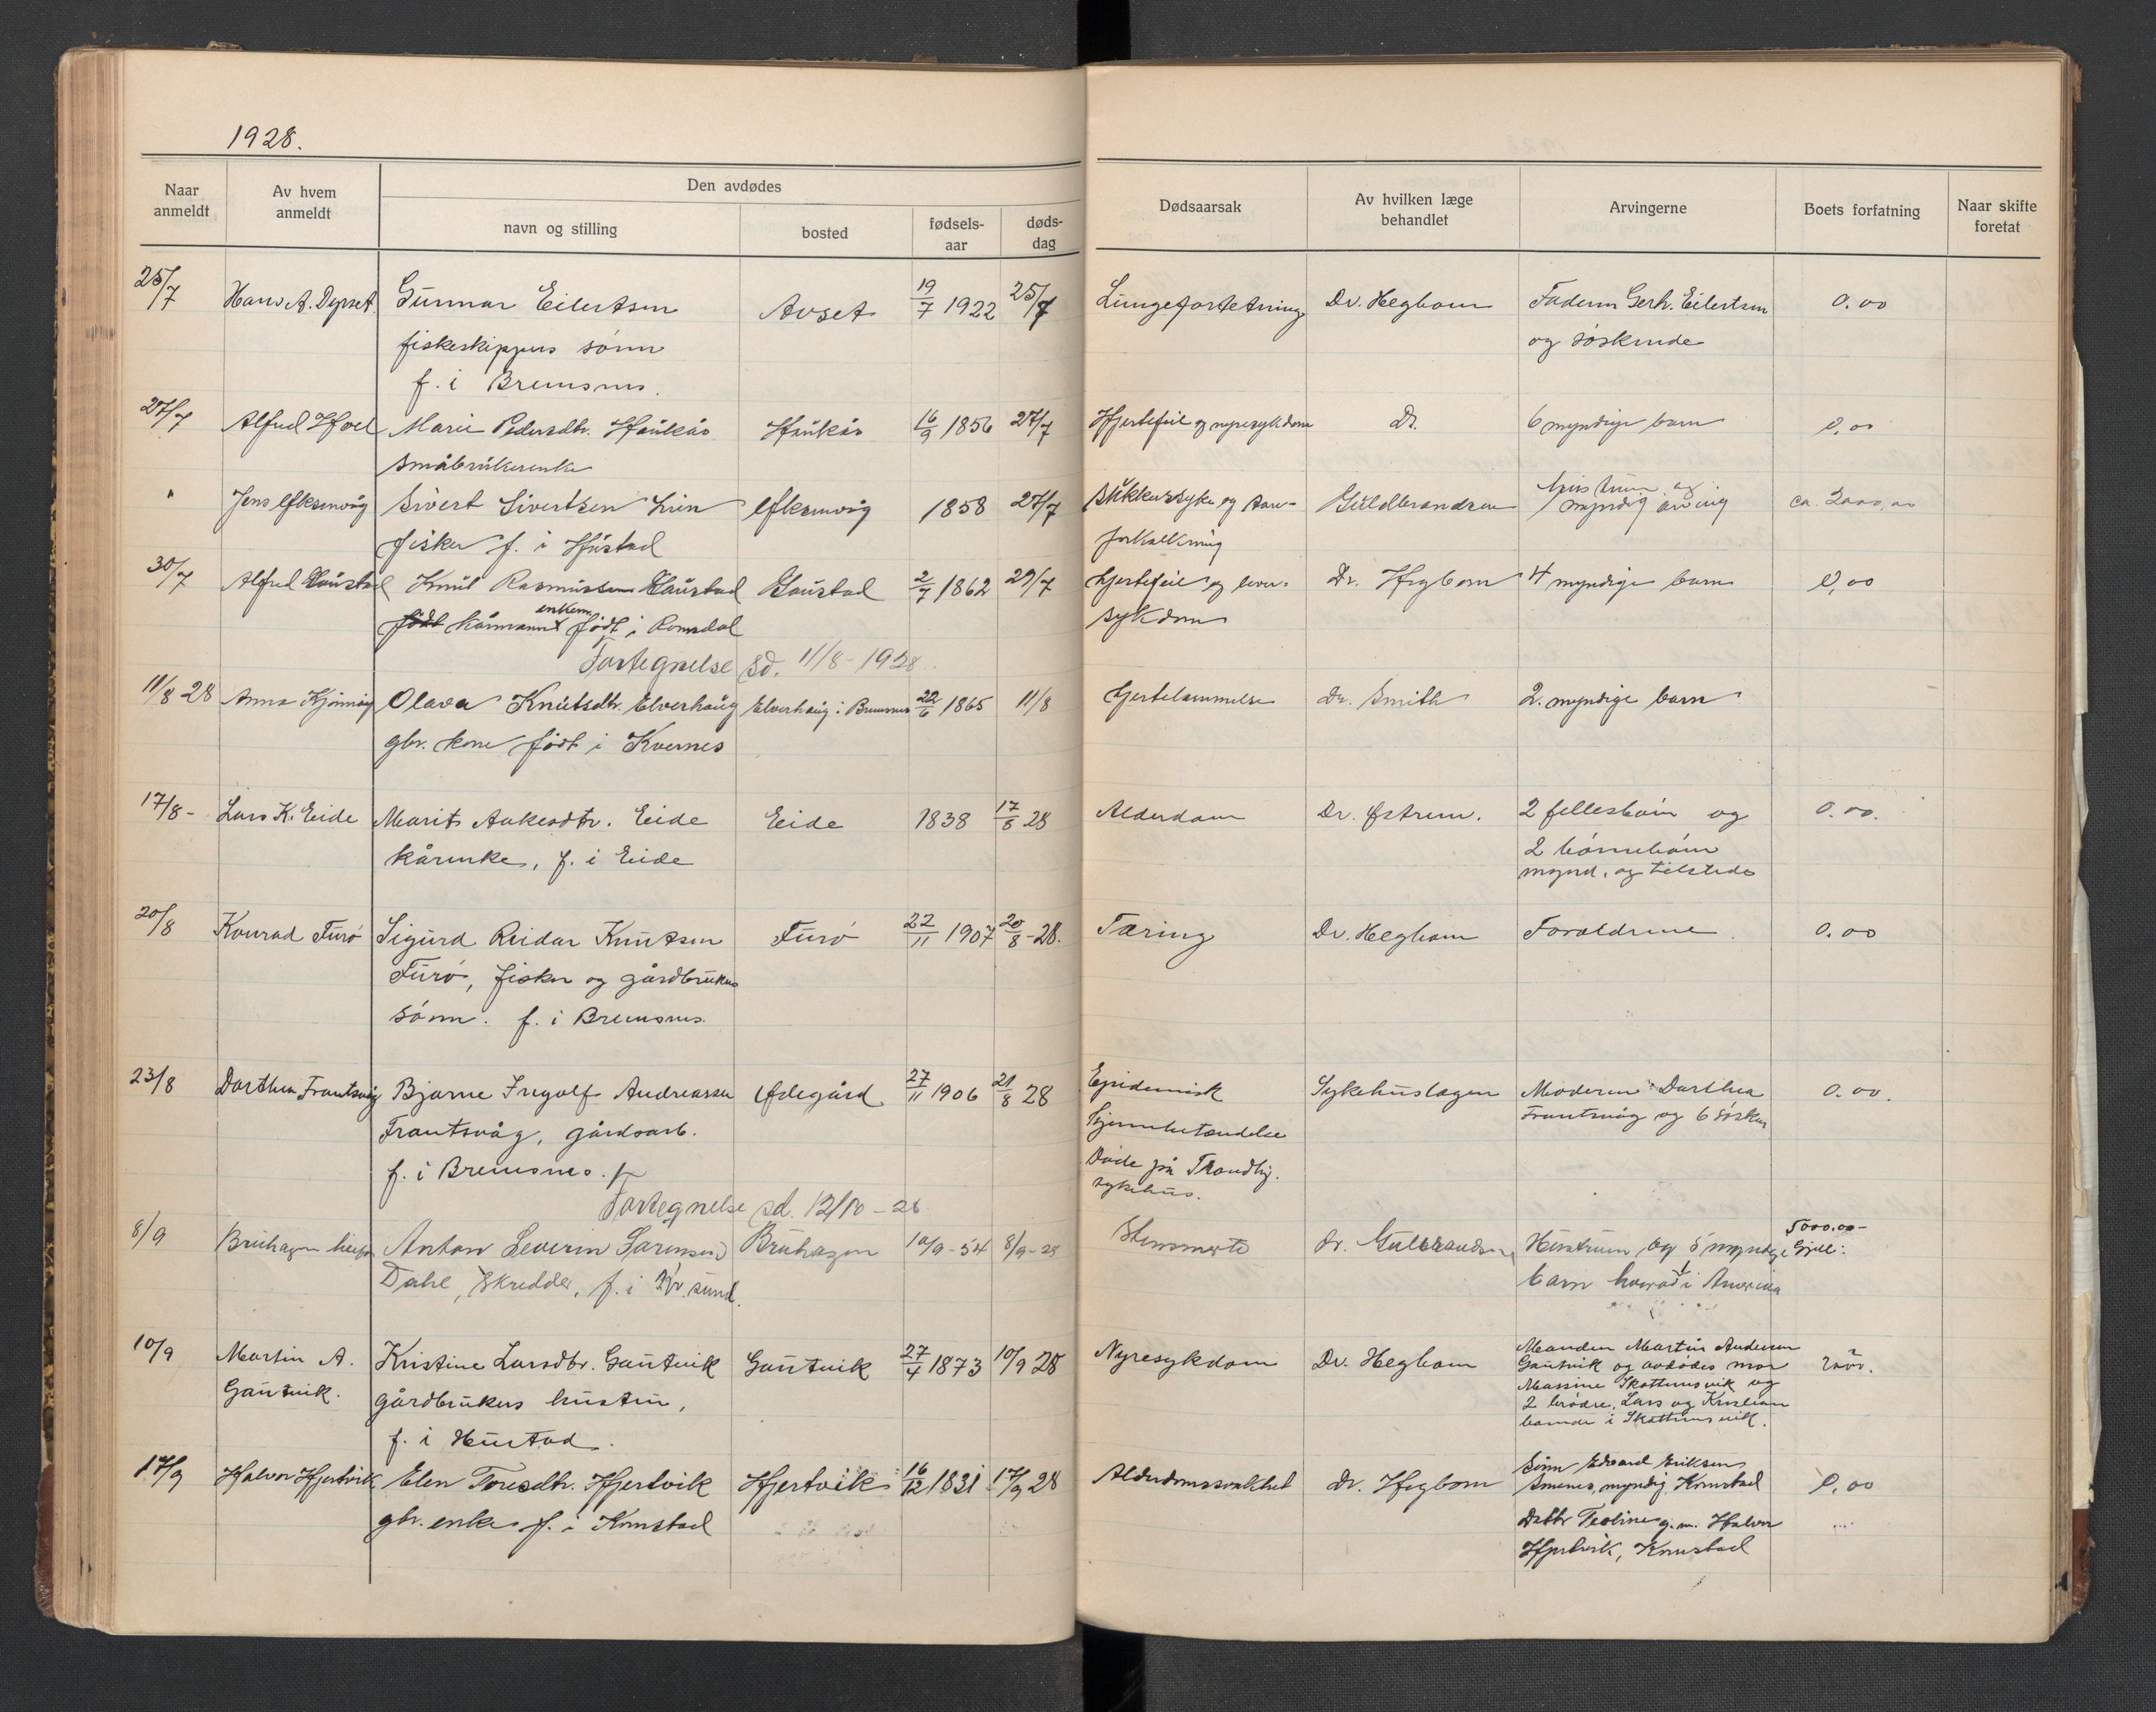 1928.
Naar anmeldt
Av hvem anmeldt
Den avdødes
navn og stilling
bosted
fødsels-aar
døds-dag
Dødsaarsak
Av hvilken læge behandlet
Arvingerne
Boets forfatning
Naar skifte foretat
25/7 Hans A. Dyrset Gunnar Eilertsen Avset 19/7 1922 25/7 Lungefortetning Dr. Hegbom Faderen Gerh. Eilertsen 0.00
fiskeskippers sønn og søskende
f. i Bremsnes.
27/7 Alfred Hoel Marie Pedersdtr. Haukås Haukås 16/9 1856 27/7 Hjertefeil og nyresykdom Dr. 6 myndige barn 0,00
småbrukerenke
" Jens Øksenvåg Sivert Sivertsen Øksenvåg 1858 27/7 Sukkersyke og aare- Guldbrandsen 1 myndig arving ca. 2000,00
fisker f. i Hustad forkalkning
30/7 Alfred Gaustad Knut Rasmussen Gaustad Gaustad 2/7 1862 29/7 Hjertefeil og lever- Dr. Hegbom 4 myndige barn 0,00
født kårmann enkem. født i Romsdal sykdom
Fortegnelse sd. 11/8-1928.
11/8 28 Anna Kjønnøy Olava Knutsdtr. Elverhaug Elverhaug i Bremsnes 22/6 1865 11/8 Hjertelammelse Dr. Smith 2 myndige barn
gbr. kone født i Kvernes
17/8- Lars K. Eide Marit Aakesdtr. Eide Eide 1838 17/8 28 Alderdom Dr. Østrem. 2 fellesbarn og 0.00.
kårenke, f. i Eide 2 børnebørn
mynd. og tilstede
20/8 Konrad Furø Sigurd Reidar Knutsen Furø 22/11 1907 20/8-28. Tæring Dr. Hegbom Forældrene. 0.00
Furø, fisker og gårdbrukers
sønn. f. i Bremsnes.
23/8 Dorthea Frantsvåg Bjarne Ingolf Andreassen Ødegård 27/11 1906 21/8 28 Epidemisk Sykehuslægen Moderen Dorthea 0.00.
Frantsvåg, gårdsarb. Hjernebetændelse Frantsvåg og 6 søsken
f. i Bremsnes. Døde på Trondhj.
sykehus.
Fortegnelse sd. 12/10-28
8/9 Bruhagen Anton Severin Sørensen Bruhagen 10/9-54 8/9-28 Dr. Gulbrandsen Hustruen og 5 myndige 5000.00- Gjeld:
Dahl, skredder, f. i Kr.sund. barn hvorav 1 i Amerika
10/9 Martin A. Kristine Larsdtr. Gautvik Gautvik 27/4 1873 10/9 28 Nyresykdom Dr. Hegbom Manden Martin Andersen 2000.
Gautvik. gårdbrukers hustru, Gautvik og avdødes mor
f. i Hustad. Massine Skottensvik og
2 brødre, Lars og Kristian
boende i Skottensvik.
17/9 Halvor Hjertvik Elen Toresdtr. Hjertvik Hjertvik 16/12 1831 17/9 28 Alderdomssvakhet Dr. Hegbom Sønn Edvard Eriksen 0,00
gbr. enke f. i Kornstad myndig, Kornstad
Datter g. m. Halvor
Hjertvik, Kornstad